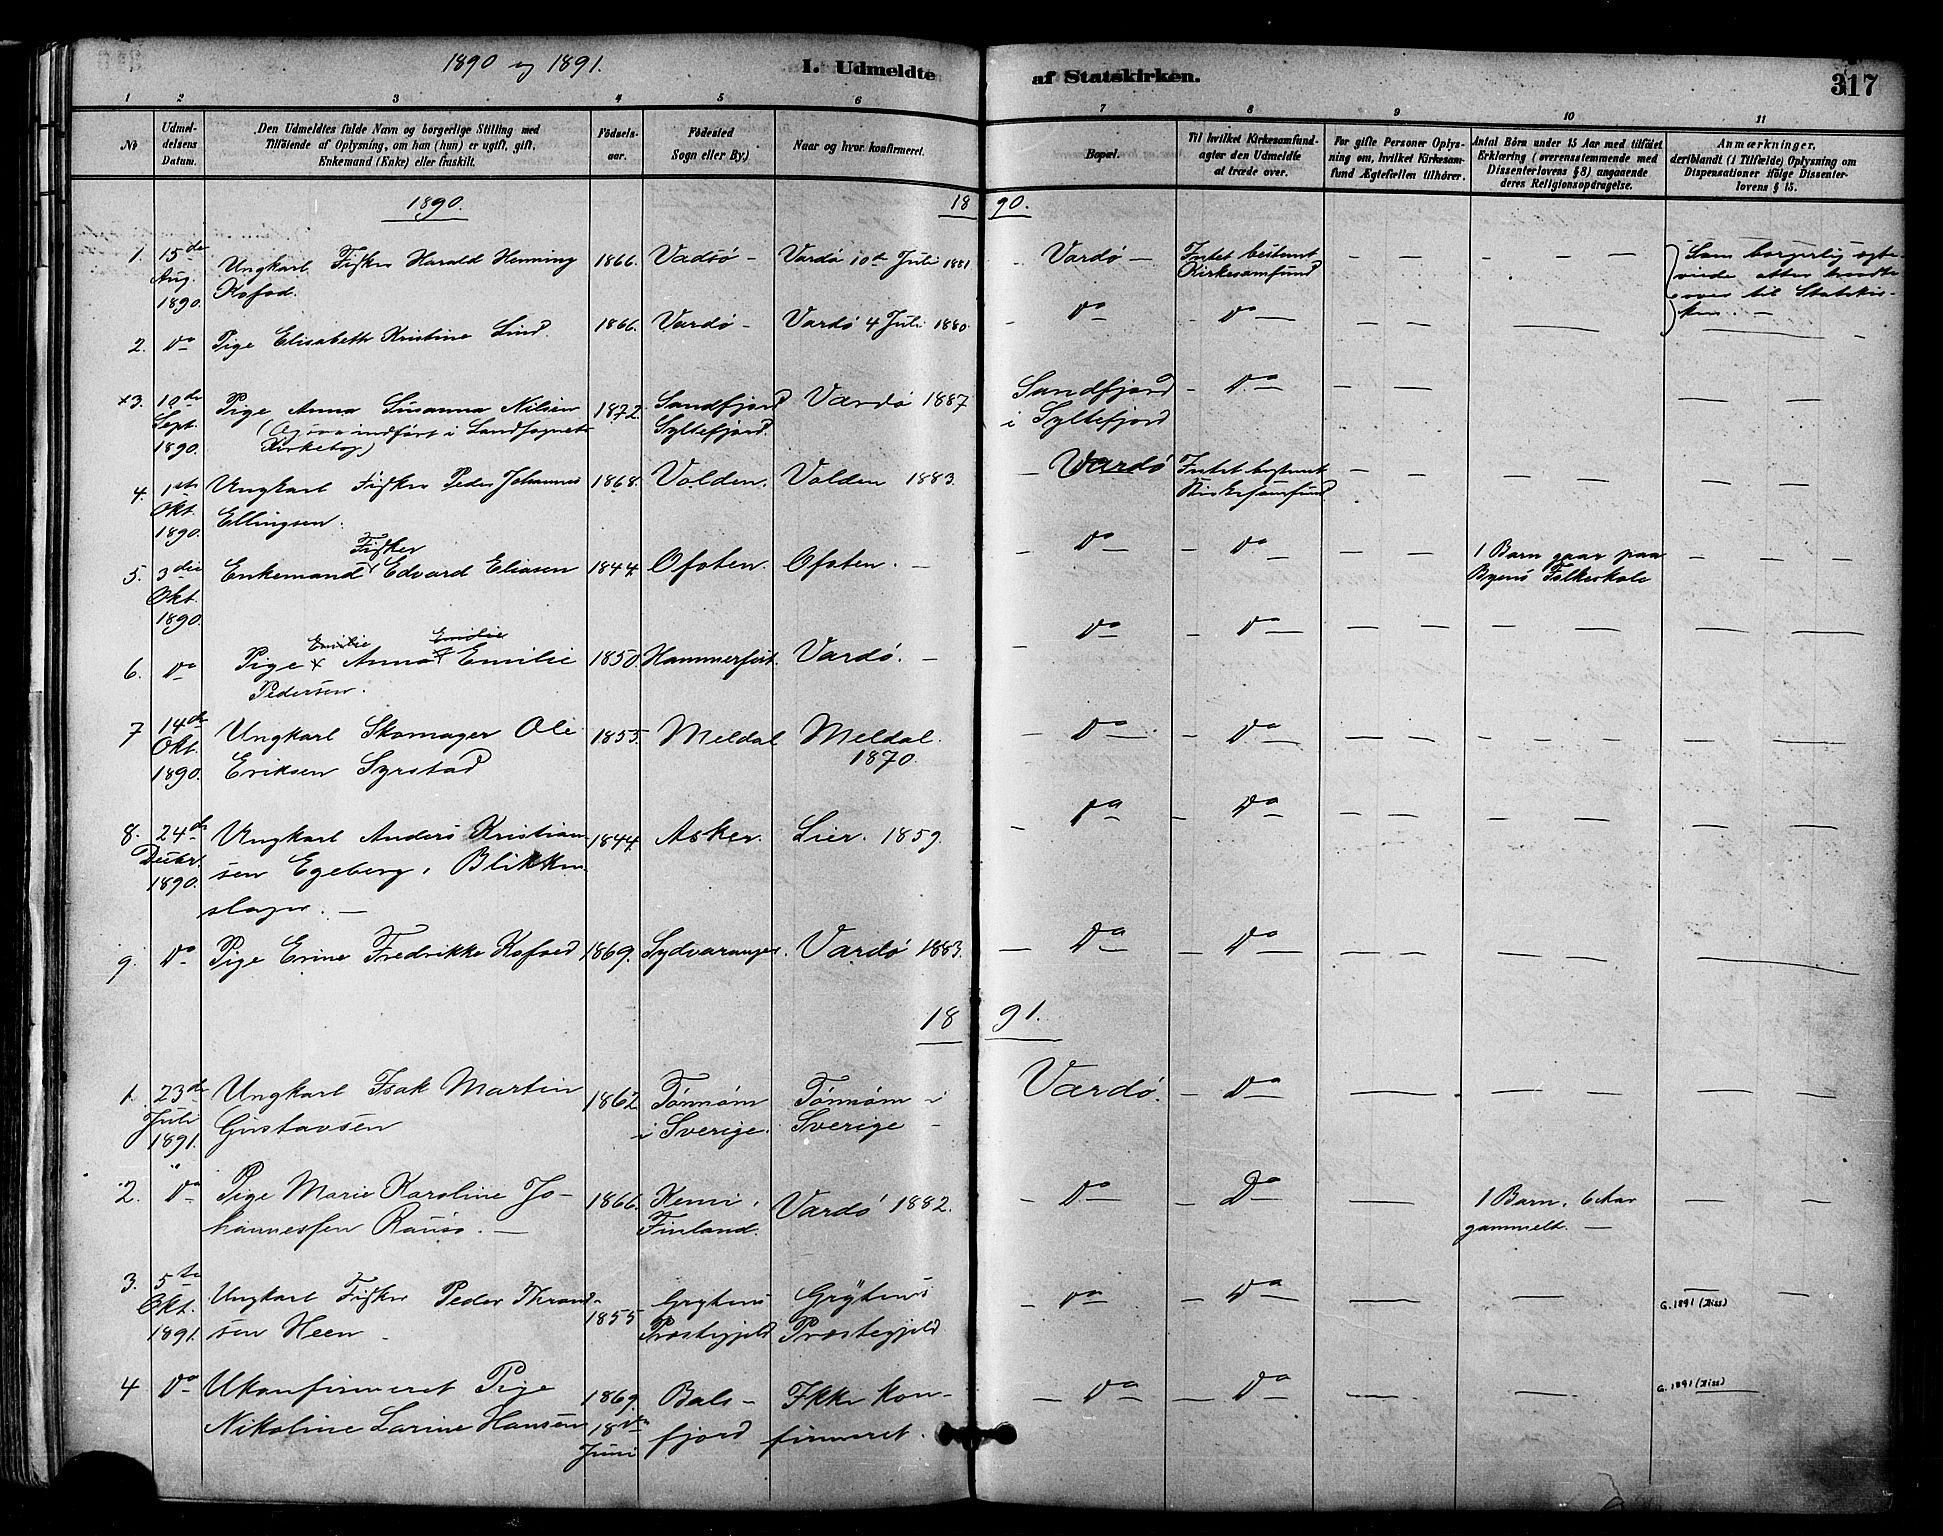 1890 og 1891.
I. Udmeldte
af Statskirken.
317
1 2 3 4 5 6
7 8 9 10 11
No
Udmeldelsens Datum.
Den Udmeldtes fulde Navn og borgerlige Stilling med
Tilföiende af Oplysning, om han (hun) er ugift, gift,
Enkemand (Enke) eller fraskilt.
Födselsaar.
Födested
Sogn eller By.)
Naar og hvor konfirmeret.
Bopæl.
Til hvilket Kirkesamfund
agter den Udmeldte
at træde over.
For gifte Personer Oplysning
om, hvilket Kirkesamfund
Ægtefællen tilhörer.
Antal Börn under 15 Aar med tilföiet
Erklæring (overensstemmende med
Dissenterlovens § 8) angaaende
deres Religionsopdragelse.
Anmærkninger,
deriblandt (i Tilfælde) Oplysning om
Dispensationer ifölge Dissenterlovens
§ 15.
1890.
18 90.
1. 15de Ungkarl Fisker Harald Henning 1866. Vadsö - Vardö 10de Juli 1881 - Vardö - Intet bestemt — — — — Som borgerlig egte-
Aug. Kofod. Kirkesamfund viede atter traadte
1890. over til Statskir-
ken. —
2. Do Pige Elisabeth Kristine Lind. 1866. Vardö - Vardö 4 Juli 1880. - Do — Do — — — — —
x3. 10de Pige Anna Susanna Nilsen 1872. Sandfjord Vardö 1887 Sandfjord - Do — — — —
Sept. (Ogsaa indfört i Landsognets Syltefjord. i Syltefjord
1890. Kirkebog)
4. 1ste Ungkarl Fisker Peder Johannes 1868. Volden. Volden 1883. - Vardö Intet bestemt — — — — — —
Okt. Ellingsen. Kirkesamfund
1890.
Fisker
5. 3die Enkemand Edvard Eliasen 1844. Ofoten. Ofoten. — - Do — Do — — — 1 Barn gaar paa — — —
Okt. Byens Folkeskole
1890.
Emilie Emilie
6. Do Pige x Anna x Emilie 1850. Hammerfest. Vardö. — Do — Do — — — — — —
Pedersen.
7 14de Ungkarl Skomager Ole 1855. Meldal Meldal. - Do — Do — — — — — —
Okt. Eriksen Syrstad 1870.
1890.
8. 24de Ungkarl Anders Kristian- 1844. Asker. Lier. 1859. - Do — Do — — — — — —
Decbr. sen Egeberg, Blikken-
1890. slager. —
9. Do Pige Erine Fredrikke Kofoed 1869. Sydvaranger. Vardö 1883. — Do — Do — — — — —
18 91.
1. 23de Ungkarl Isak Martin 1862 Tönnöm Tönnöm i Vardö. - Do — — — —
Juli Gustavsen i Sverige. Sverige -
1891.
2. Do Pige Marie Karoline Jo- 1866. Kemi, Vardö 1882. - Do — Do — 1 Barn, 6 Aar — —
hannessen Rauso. — Finland. gammelt. —
3. 5te Ungkarl Fisker Peder Thrond- 1855 Grytens Grytens - Do — Do — — — —
Okt. sen Heen Præstegjeld Præstegjeld G. 1891 (Diss)
1891.
4 Do Ukonfirmeret Pige 1869. Bals- Ikke kon- — Do — Do — — G. 1891 (Diss)
Nikoline Larine Hansen 18de fjord firmeret.
Juni